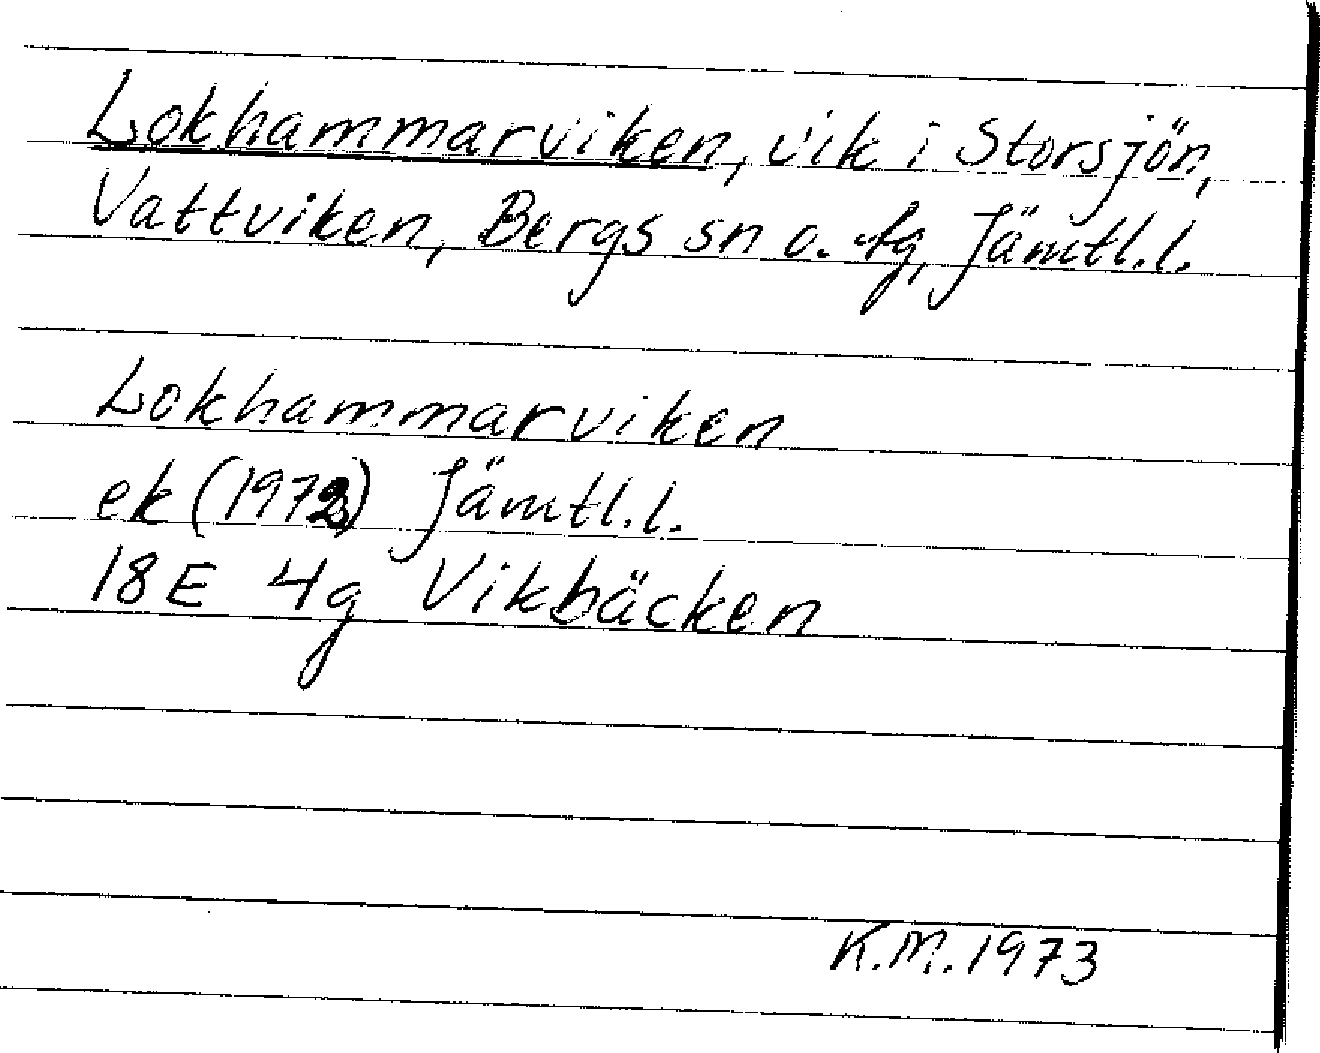 Lokhammarviken, vik i Storsjön,
Vattviken, Bergs sn o. tg, Jämtl.l.
Lokhammarviken
ek (1972) Jämtl.l.
18 E 4g Vikbäcken
K.M. 1973